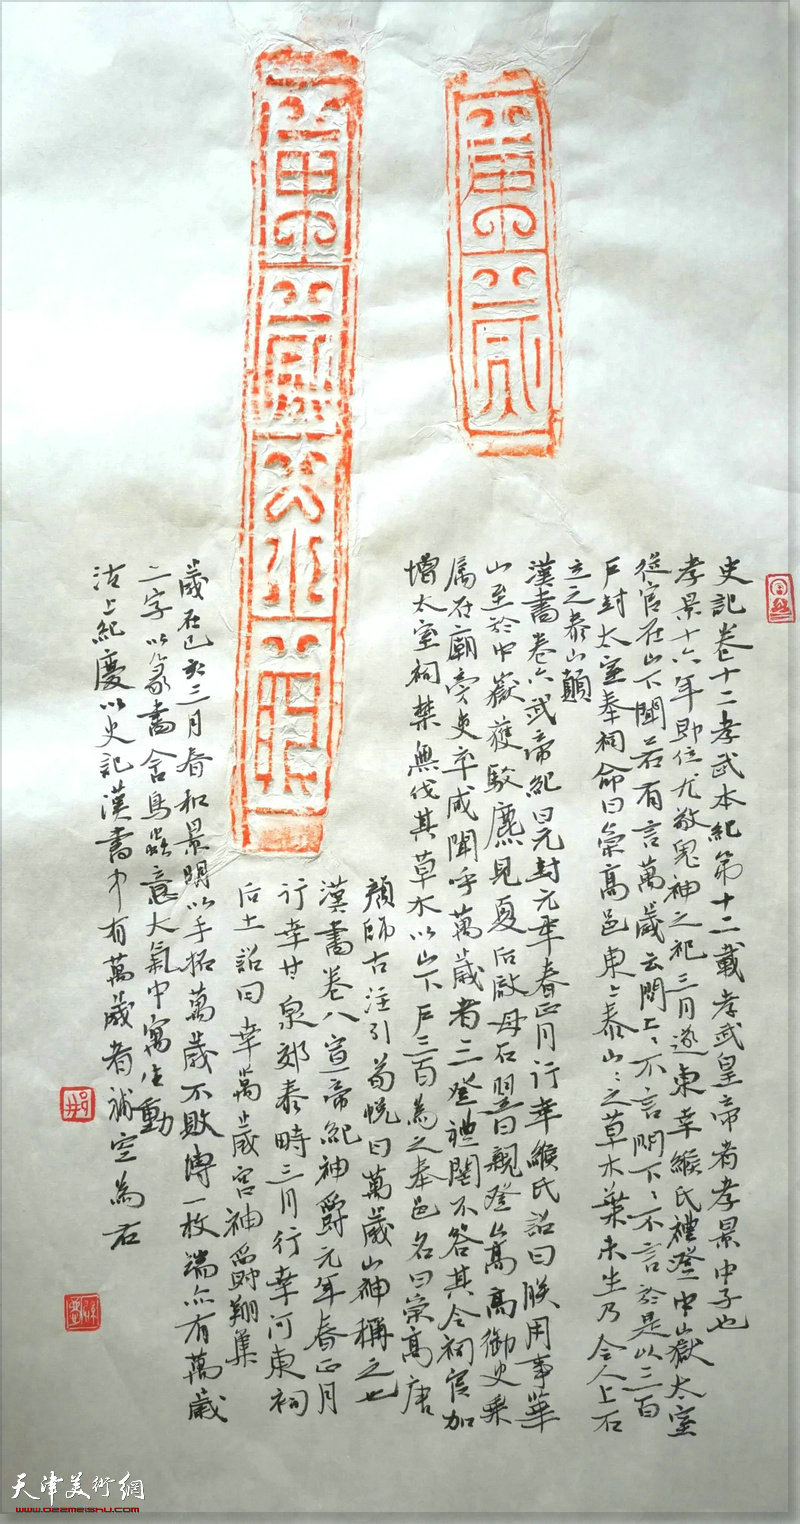 萬歲不敗
萬歲
史記卷十二孝武本紀第十二載孝武皇帝者孝景中子也
孝景十六年即位尤敬鬼神之祀三月遂東幸緱氏禮登中嶽太室
從官在山下聞若有言萬歲云問上上不言問下下不言於是以三百
戶封太室奉祠命曰崇高邑東上泰山山之草木葉未生乃令人上石
立之泰山顛
漢書卷六武帝紀曰元封元年春正月行幸緱氏詔曰朕用事華
山至於中嶽獲駮麃見夏后啟母石翌日親登嵩高御史乘
屬在廟旁吏卒咸聞呼萬歲者三登禮罔不答其令祠官加
增太室祠禁無伐其草木以山下戶三百為之奉邑名曰崇高唐
顏師古注引荀悅曰萬歲山神稱之也
漢書卷八宣帝紀神爵元年春正月
行幸甘泉郊泰畤三月行幸河東祠
后土詔曰幸萬歲宮神爵翔集
歲在己亥三月春和景明以手拓萬歲不敗塼一枚端亦有萬歲
二字以篆書含鳥蟲意大氣中寓生動
沽上紀慶以史記漢書中有萬歲者補空為右
天津美術網
www.022meishu.com